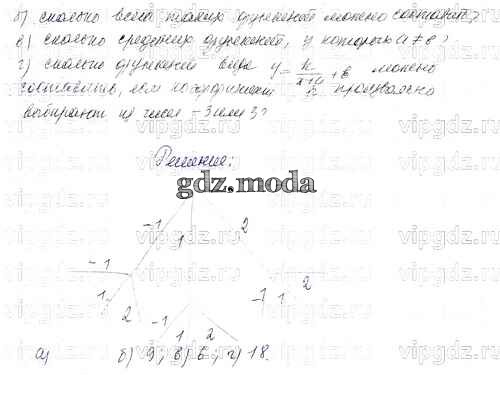 б) сколько всего таких функций можно составить?
в) сколько среди них функций, у которых a ≠ b?
г) сколько функций вида y = k/(x+a) + b можно
составить, если коэффициент k произвольно
выбирают из чисел -3 или 3?
Решение:
gdz.moda
-1 1 2
-1 1 2
-1 1 2
-1 1 2
а) б) 9; в) 6; г) 18.
vipgdz.ru